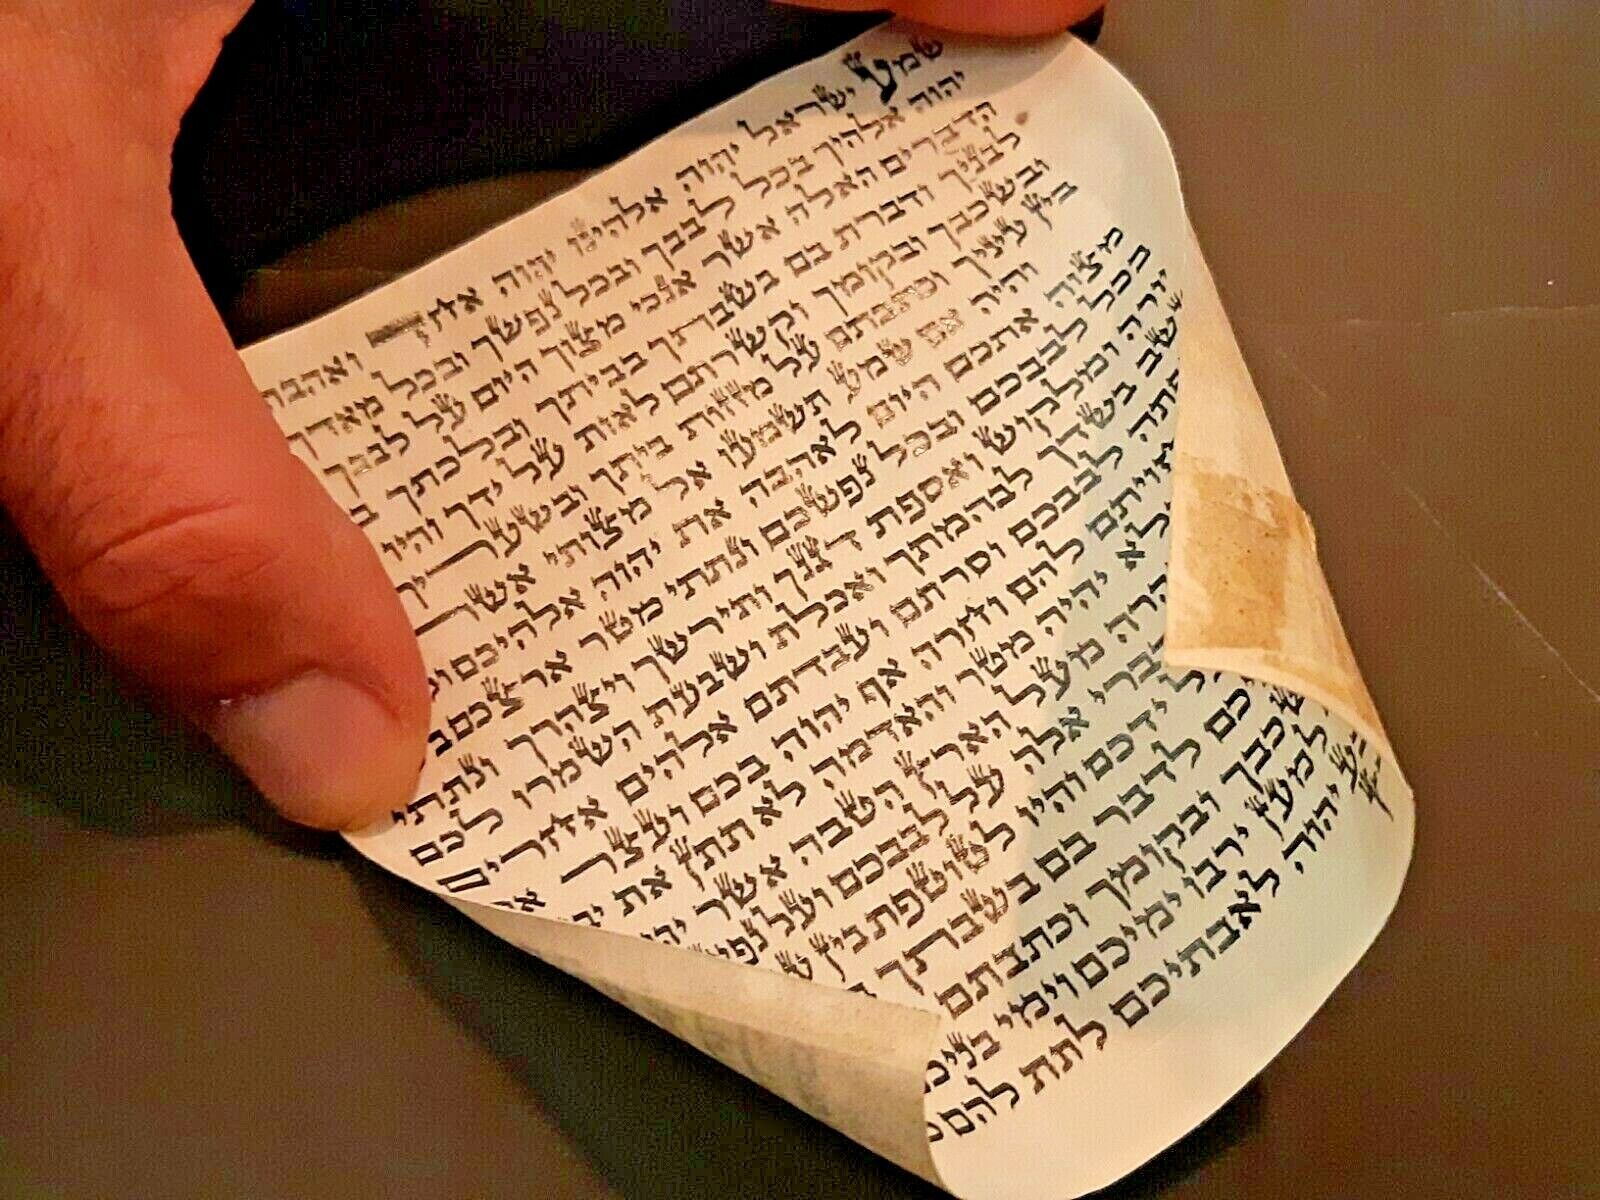 שמע ישראל יהוה אלהינו יהוה אחד ואהבת
יהוה אלהיך בכל לבבך ובכל נפשך ובכל מאדך
הדברים האלה אשר אנכי מצוך היום על לבבך
לבניך ודברת בם בשבתך בביתך ובלכתך
ובשכבך ובקומך וקשרתם לאות על ידך והיו
בין עיניך וכתבתם על מזזות ביתך ובשעריך
והיה אם שמע תשמעו אל מצותי אשר
מצוה אתכם היום לאהבה את יהוה אלהיכם
בכל לבבכם ובכל נפשכם ונתתי מטר ארצכם
יורה ומלקוש ואספת דגנך ותירשך ויצהרך ונתתי
עשב בשדך לבהמתך ואכלת ושבעת השמרו לכם
לבבכם וסרתם ועבדתם אלהים אחרים
להם וחרה אף יהוה בכם ועצר
ולא יהיה מטר והאדמה לא תתן את
מעל הארץ הטבה אשר
דברי אלה על לבבכם ועל
ידכם והיו לטוטפת בין
לדבר בם בשבתך
ובקומך וכתבתם
למען ירבו ימיכם וימי
יהוה לאבתיכם לתת להם